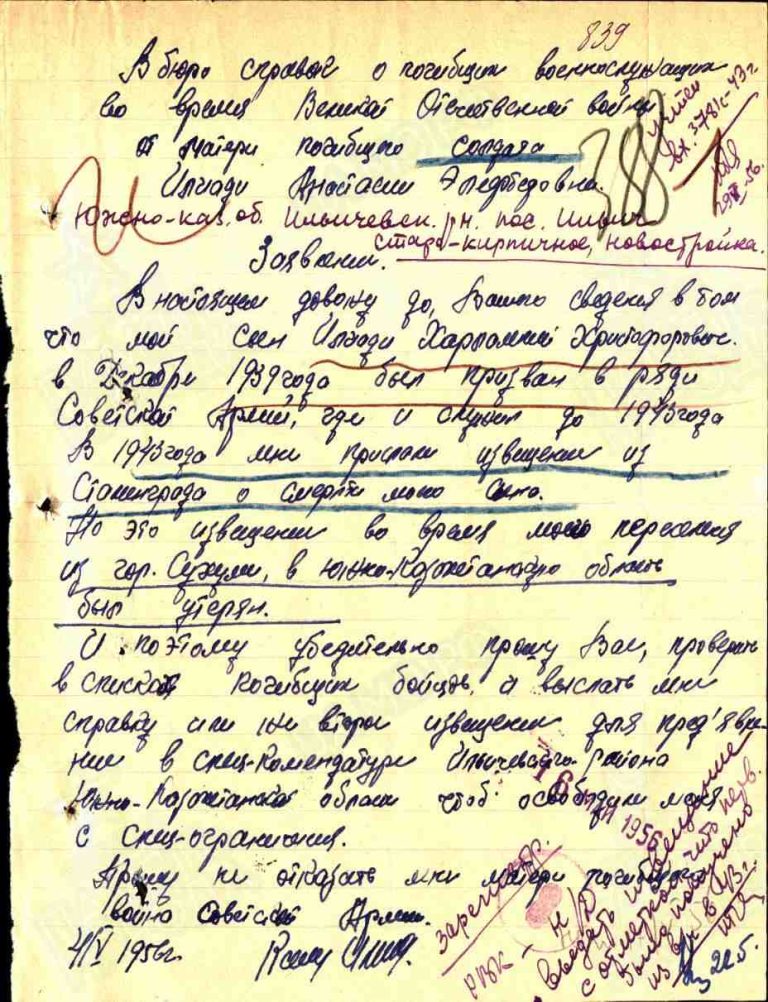 839
В бюро справок о погибших военнослужащих
во время Великой Отечественной войны
от матери погибшего солдата
Илиади Анастасии
Южно-каз. об. Ильичевск. р-н. пос. Ильич
Старо-кирпичное, новостройка.
388
учтен
вх. 3781с-43г.
1
Заявлени.
В настоящем довожу до, Вашего сведения в том
что мой сын Илиади Харлампий Христофорович.
в Декабри 1939 года был призван в ряди
Советской Армий, где и служил до 1943 года
В 1943 года мни прислали извищении из
Сталинграда о смерти моего сына.
Но это извищении во время моего переселия
из гор. Сухуми, в Южно-Казахстанскую область
был утерян.
И поэтому убедительно прошу Вас, проверить
в списках погибших бойцов, и выслать мни
справку или же второе извищении для пред'явле-
ние в спец-комендатуре Ильичевского района
Южно-Казахстанской области чтоб освободили меня
с спец-ограничения.
Прошу не отказать мни матери погибшего
война Советской Армии.
4/V 1956г.
16 1956
зарегистр.
РВК - н/д
выдать извещение
с отметкой что перв.
было получено
из в/ч в 43г.
22.5.